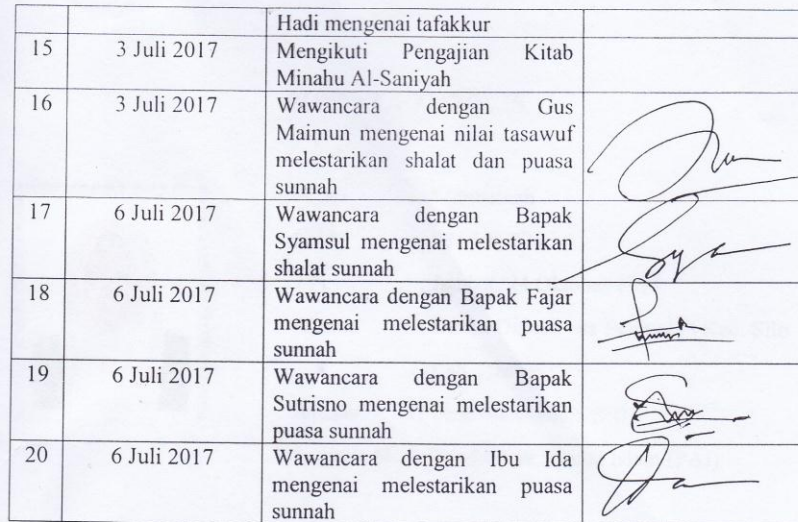 Hadi mengenai tafakkur
15 3 Juli 2017 Mengikuti Pengajian Kitab
Minahu Al-Saniyah
16 3 Juli 2017 Wawancara dengan Gus
Maimun mengenai nilai tasawuf
melestarikan shalat dan puasa
sunnah
17 6 Juli 2017 Wawancara dengan Bapak
Syamsul mengenai melestarikan
shalat sunnah
18 6 Juli 2017 Wawancara dengan Bapak Fajar
mengenai melestarikan puasa
sunnah
19 6 Juli 2017 Wawancara dengan Bapak
Sutrisno mengenai melestarikan
puasa sunnah
20 6 Juli 2017 Wawancara dengan Ibu Ida
mengenai melestarikan puasa
sunnah